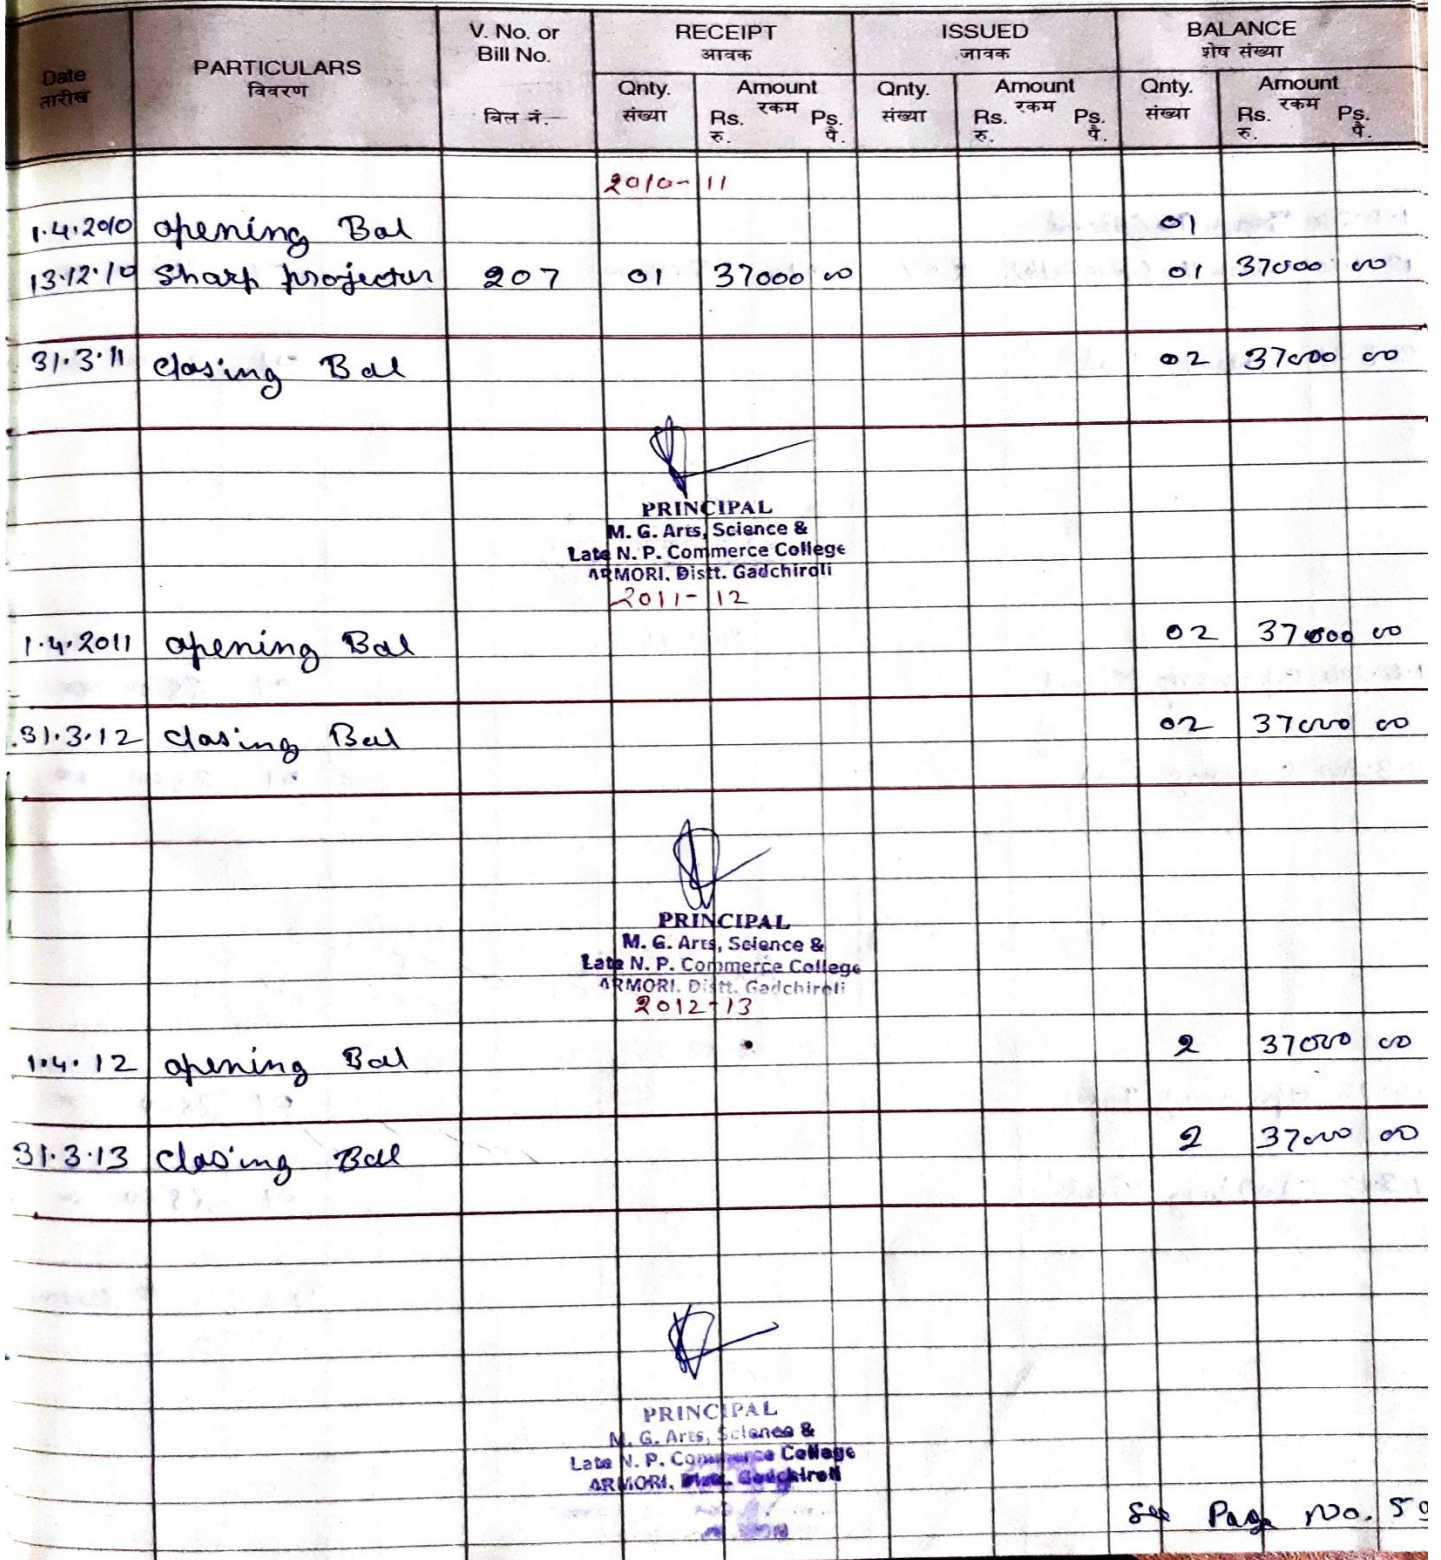 Date तारीख PARTICULARS विवरण V. No. or Bill No. बिल नं. RECEIPT आवक ISSUED जावक BALANCE शेष संख्या
Qnty. संख्या Amount रकम Rs. रु. Ps. पै. Qnty. संख्या Amount रकम Rs. रु. Ps. पै. Qnty. संख्या Amount रकम Rs. रु. Ps. पै.
2010-11
1.4.2010 opening Bal 01
13.12.10 Sharp projector 207 01 37000 00 01 37000 00
31.3.11 closing Bal 02 37000 00
PRINCIPAL
M. G. Arts, Science &
Late N. P. Commerce College
ARMORI, Distt. Gadchiroli
2011-12
1.4.2011 opening Bal 02 37000 00
31.3.12 closing Bal 02 37000 00
PRINCIPAL
M. G. Arts, Science &
Late N. P. Commerce College
ARMORI. Distt. Gadchiroli
2012-13
1.4.12 opening Bal 2 37000 00
31.3.13 closing Bal 2 37000 00
PRINCIPAL
M. G. Arts, Science &
Late N. P. Commerce College
ARMORI, Distt. Gadchiroli
See Page No.